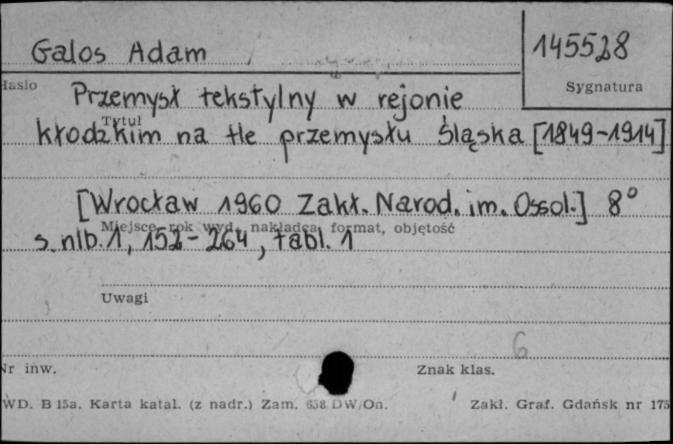 Galos Adam
145528
Hasło
Sygnatura
Przemysł tekstylny w rejonie
Tytuł
kłodzkim na tle przemysłu Śląska [1849-1914]
[Wrocław 1960 Zakł. Narod. im. Ossol.] 8°
Miejsce, rok wyd., nakładca, format, objętość
s. nlb. 1, 152-264, tabl. 1
Uwagi
6
Nr inw.
Znak klas.
WD. B 15a. Karta katal. (z nadr.) Zam. 658 DW/On.
Zakł. Graf. Gdańsk nr 175